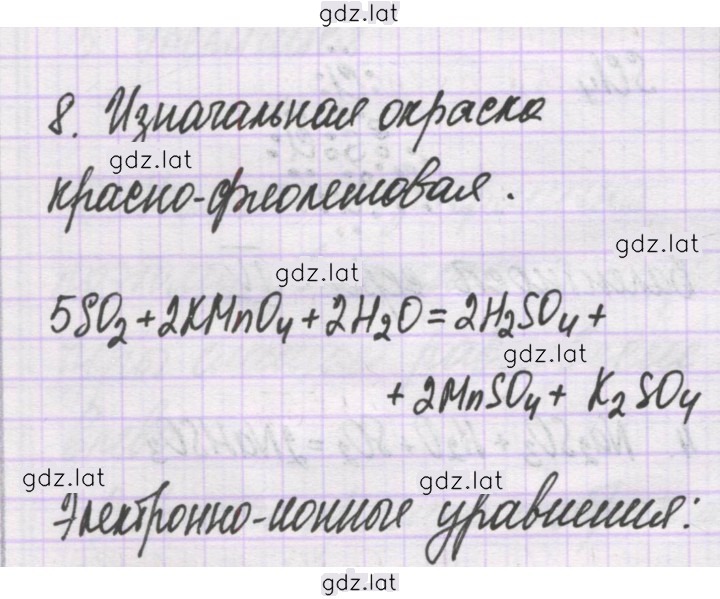 gdz.lat
8. Изначальная окраска
gdz.lat
красно-фиолетовая.
gdz.lat
gdz.lat
5SO₂+2KMnO₄+2H₂O=2H₂SO₄+
gdz.lat
+2MnSO₄+ K₂SO₄
gdz.lat
gdz.lat
Электронно-ионные уравнения:
gdz.lat